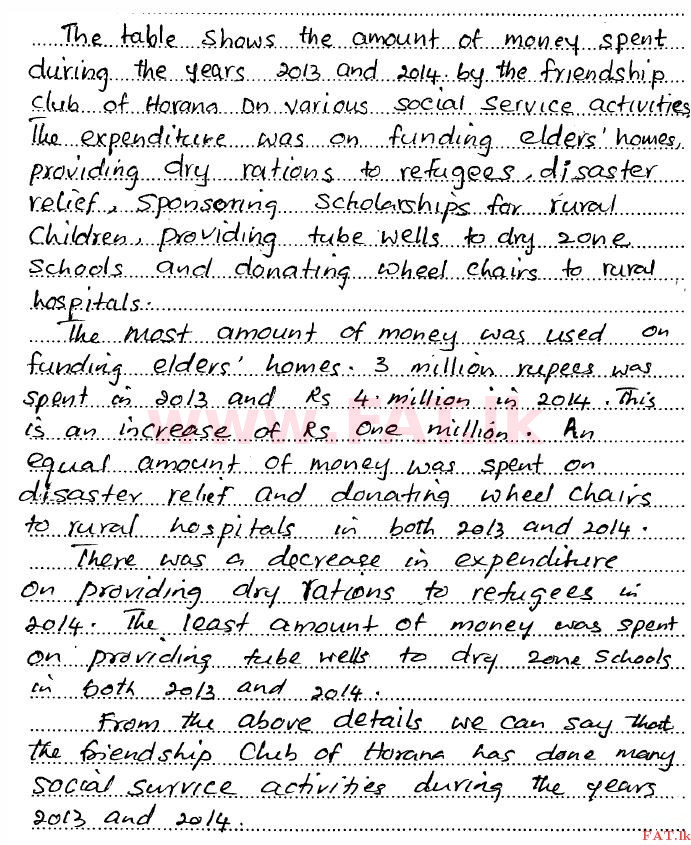 The table shows the amount of money spent
during the years 2013 and 2014 by the friendship
Club of Horana on various social service activities
The expenditure was on funding elders' homes,
providing dry rations to refugees, disaster
relief, sponsoring scholarships for rural
Children, providing tube wells to dry zone
Schools and donating wheel chairs to rural
hospitals.
The most amount of money was used on
funding elders' homes. 3 million rupees was
spent in 2013 and Rs 4 million in 2014. This
is an increase of Rs one million. An
equal amount of money was spent on
disaster relief and donating wheel chairs
to rural hospitals in both 2013 and 2014.
There was a decrease in expenditure
on providing dry rations to refugees in
2014. The least amount of money was spent
on providing tube wells to dry zone schools
in both 2013 and 2014.
From the above details we can say that
the friendship Club of Horana has done many
social survice activities during the years
2013 and 2014.
www.FAT.lk
FAT.lk